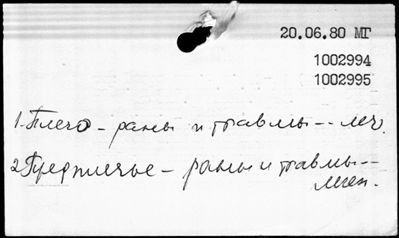 20.06.80 МГ
1002994
1002995
1. Плечо - раны и травмы -- леч.
2. Предплечье - раны и травмы --
леч.